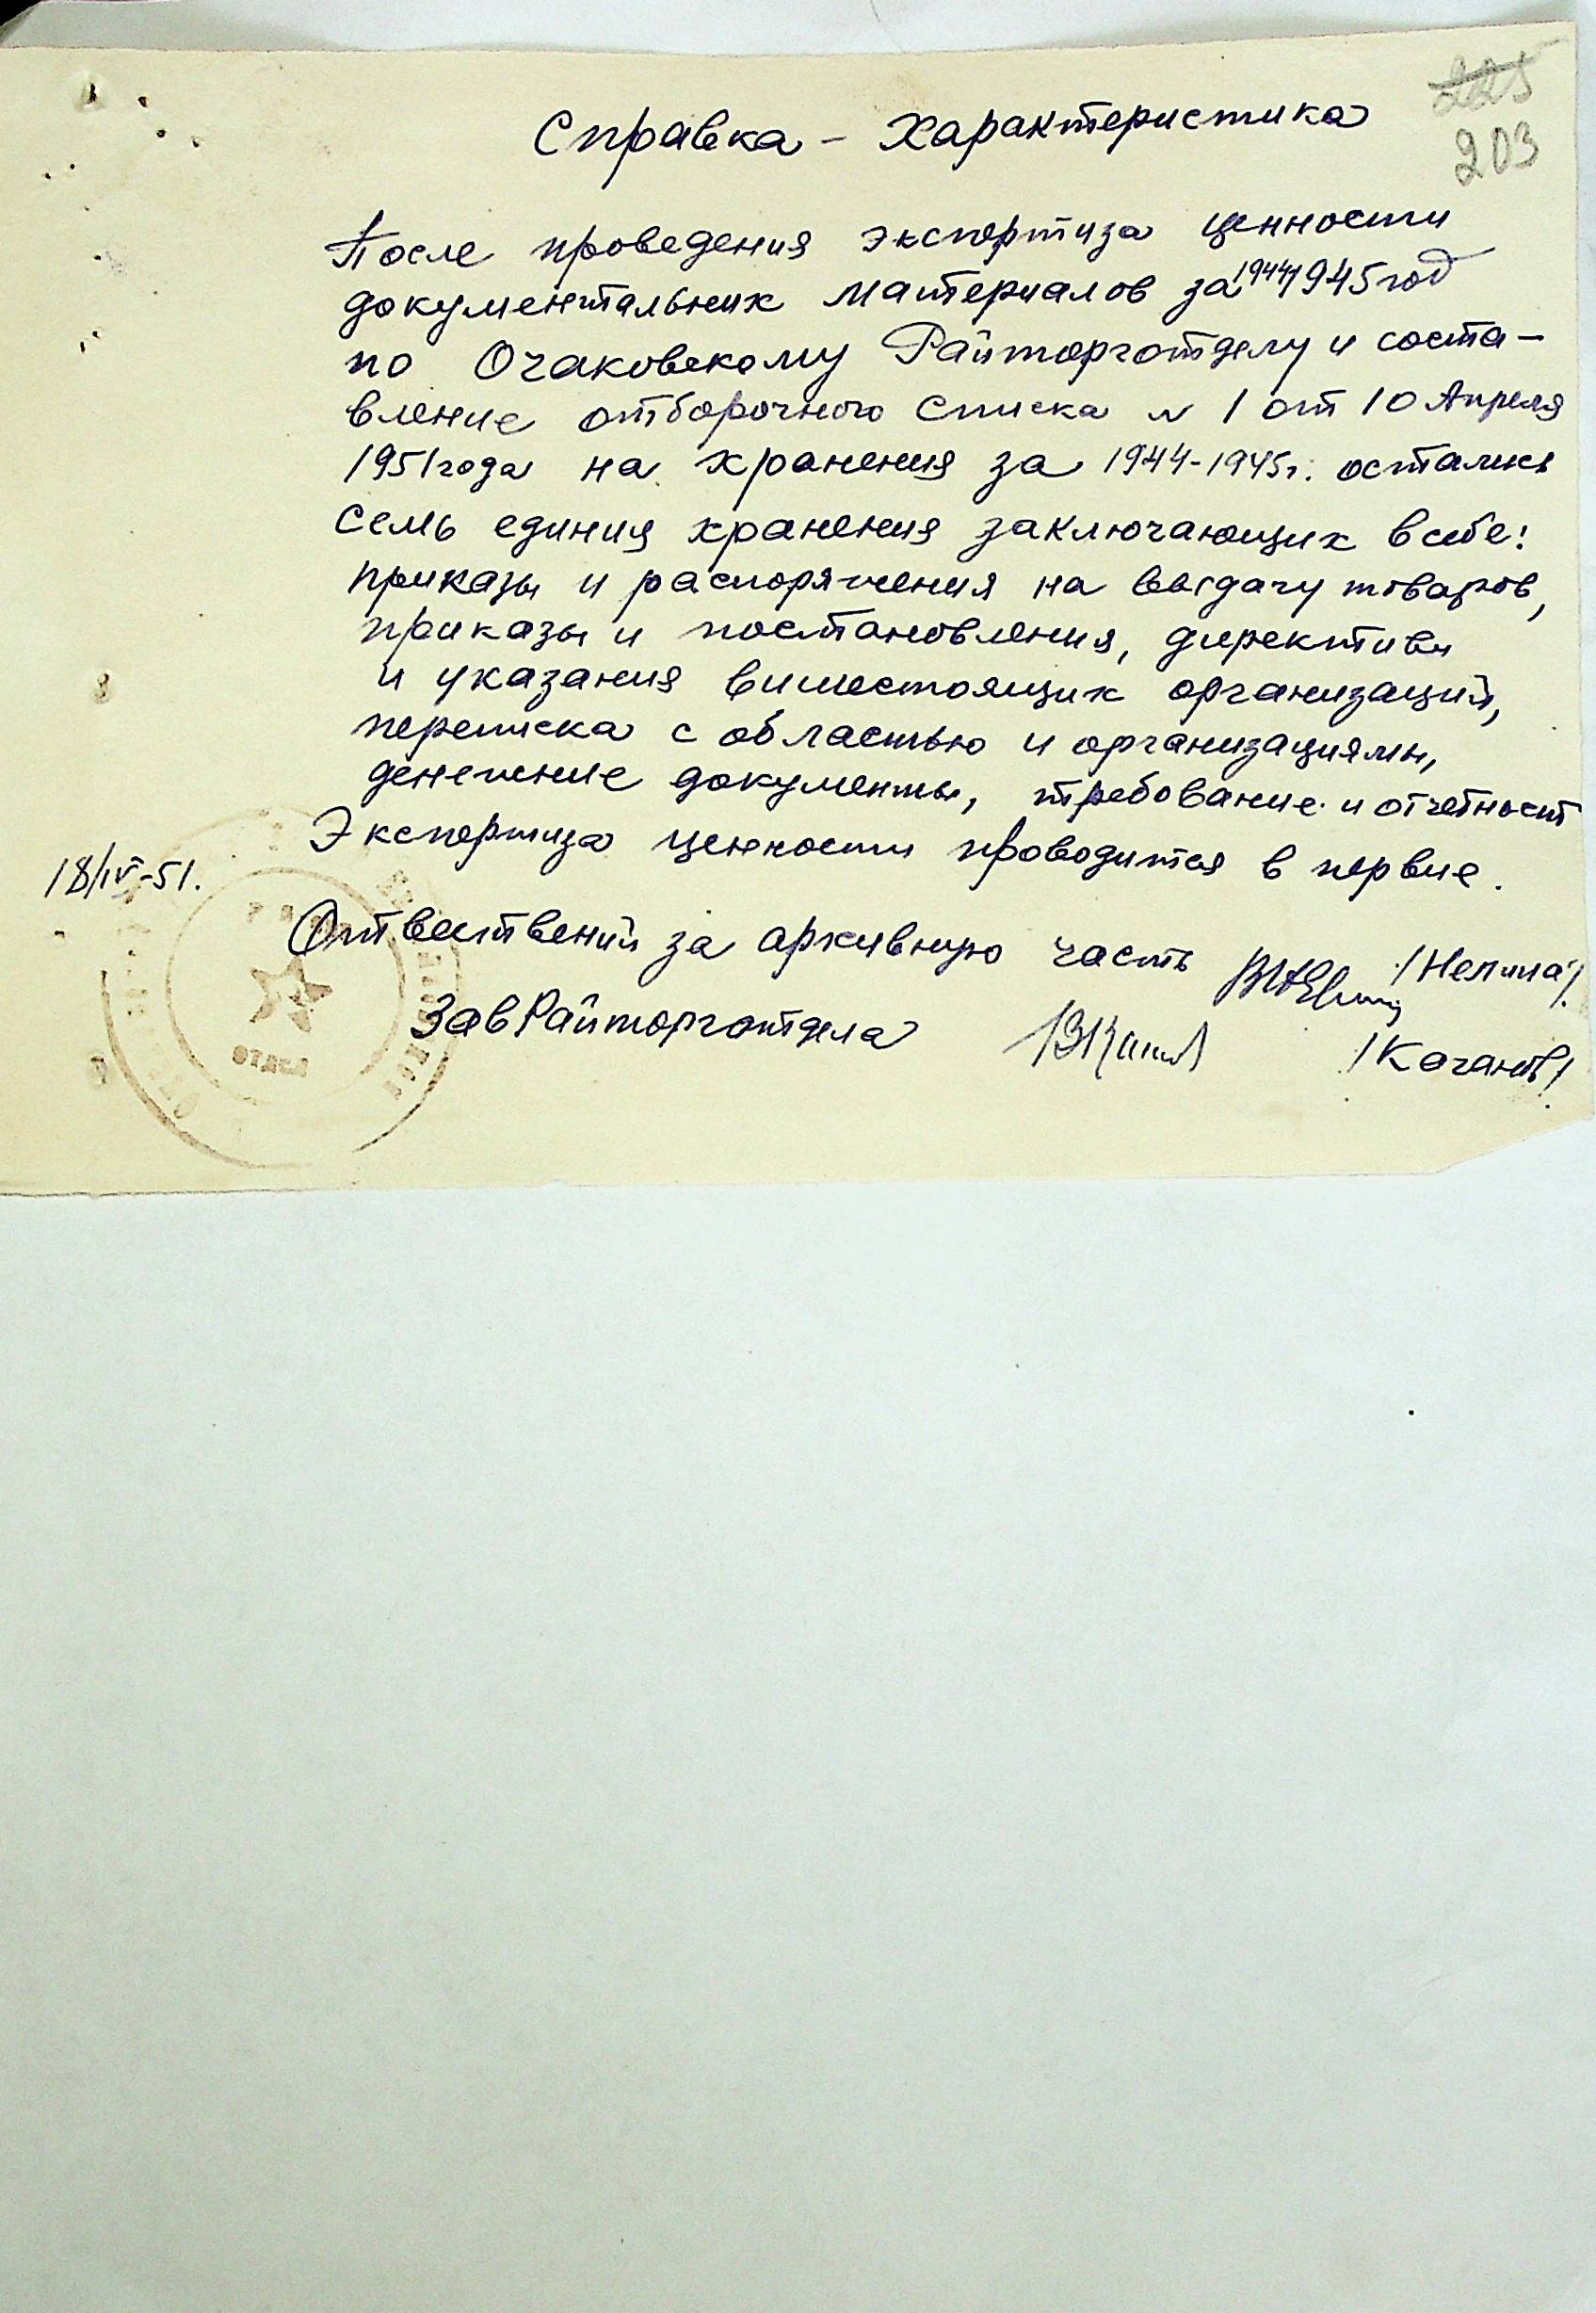 225
203
Справка - Характеристика
После проведения экспертиза ценности
документальних материалов за 1944 1945 год
по Очаковскому Райторготделу и соста-
вление отборочного списка N 1 от 10 Апреля
1951 года на хранения за 1944-1945г. осталис
семь единиц хранения заключающих в себе:
приказы и распоряжения на выдачу товаров,
приказы и постановления, директиви
и указания вишестоящих организаций,
переписка с областью и организациями,
денежние документы, требование и отчетност
Экспертиза ценности проводится в первие.
18/IV-51.
Ответственій за архивную часть /Непина/.
Зав Райторготдела /Качанов/.